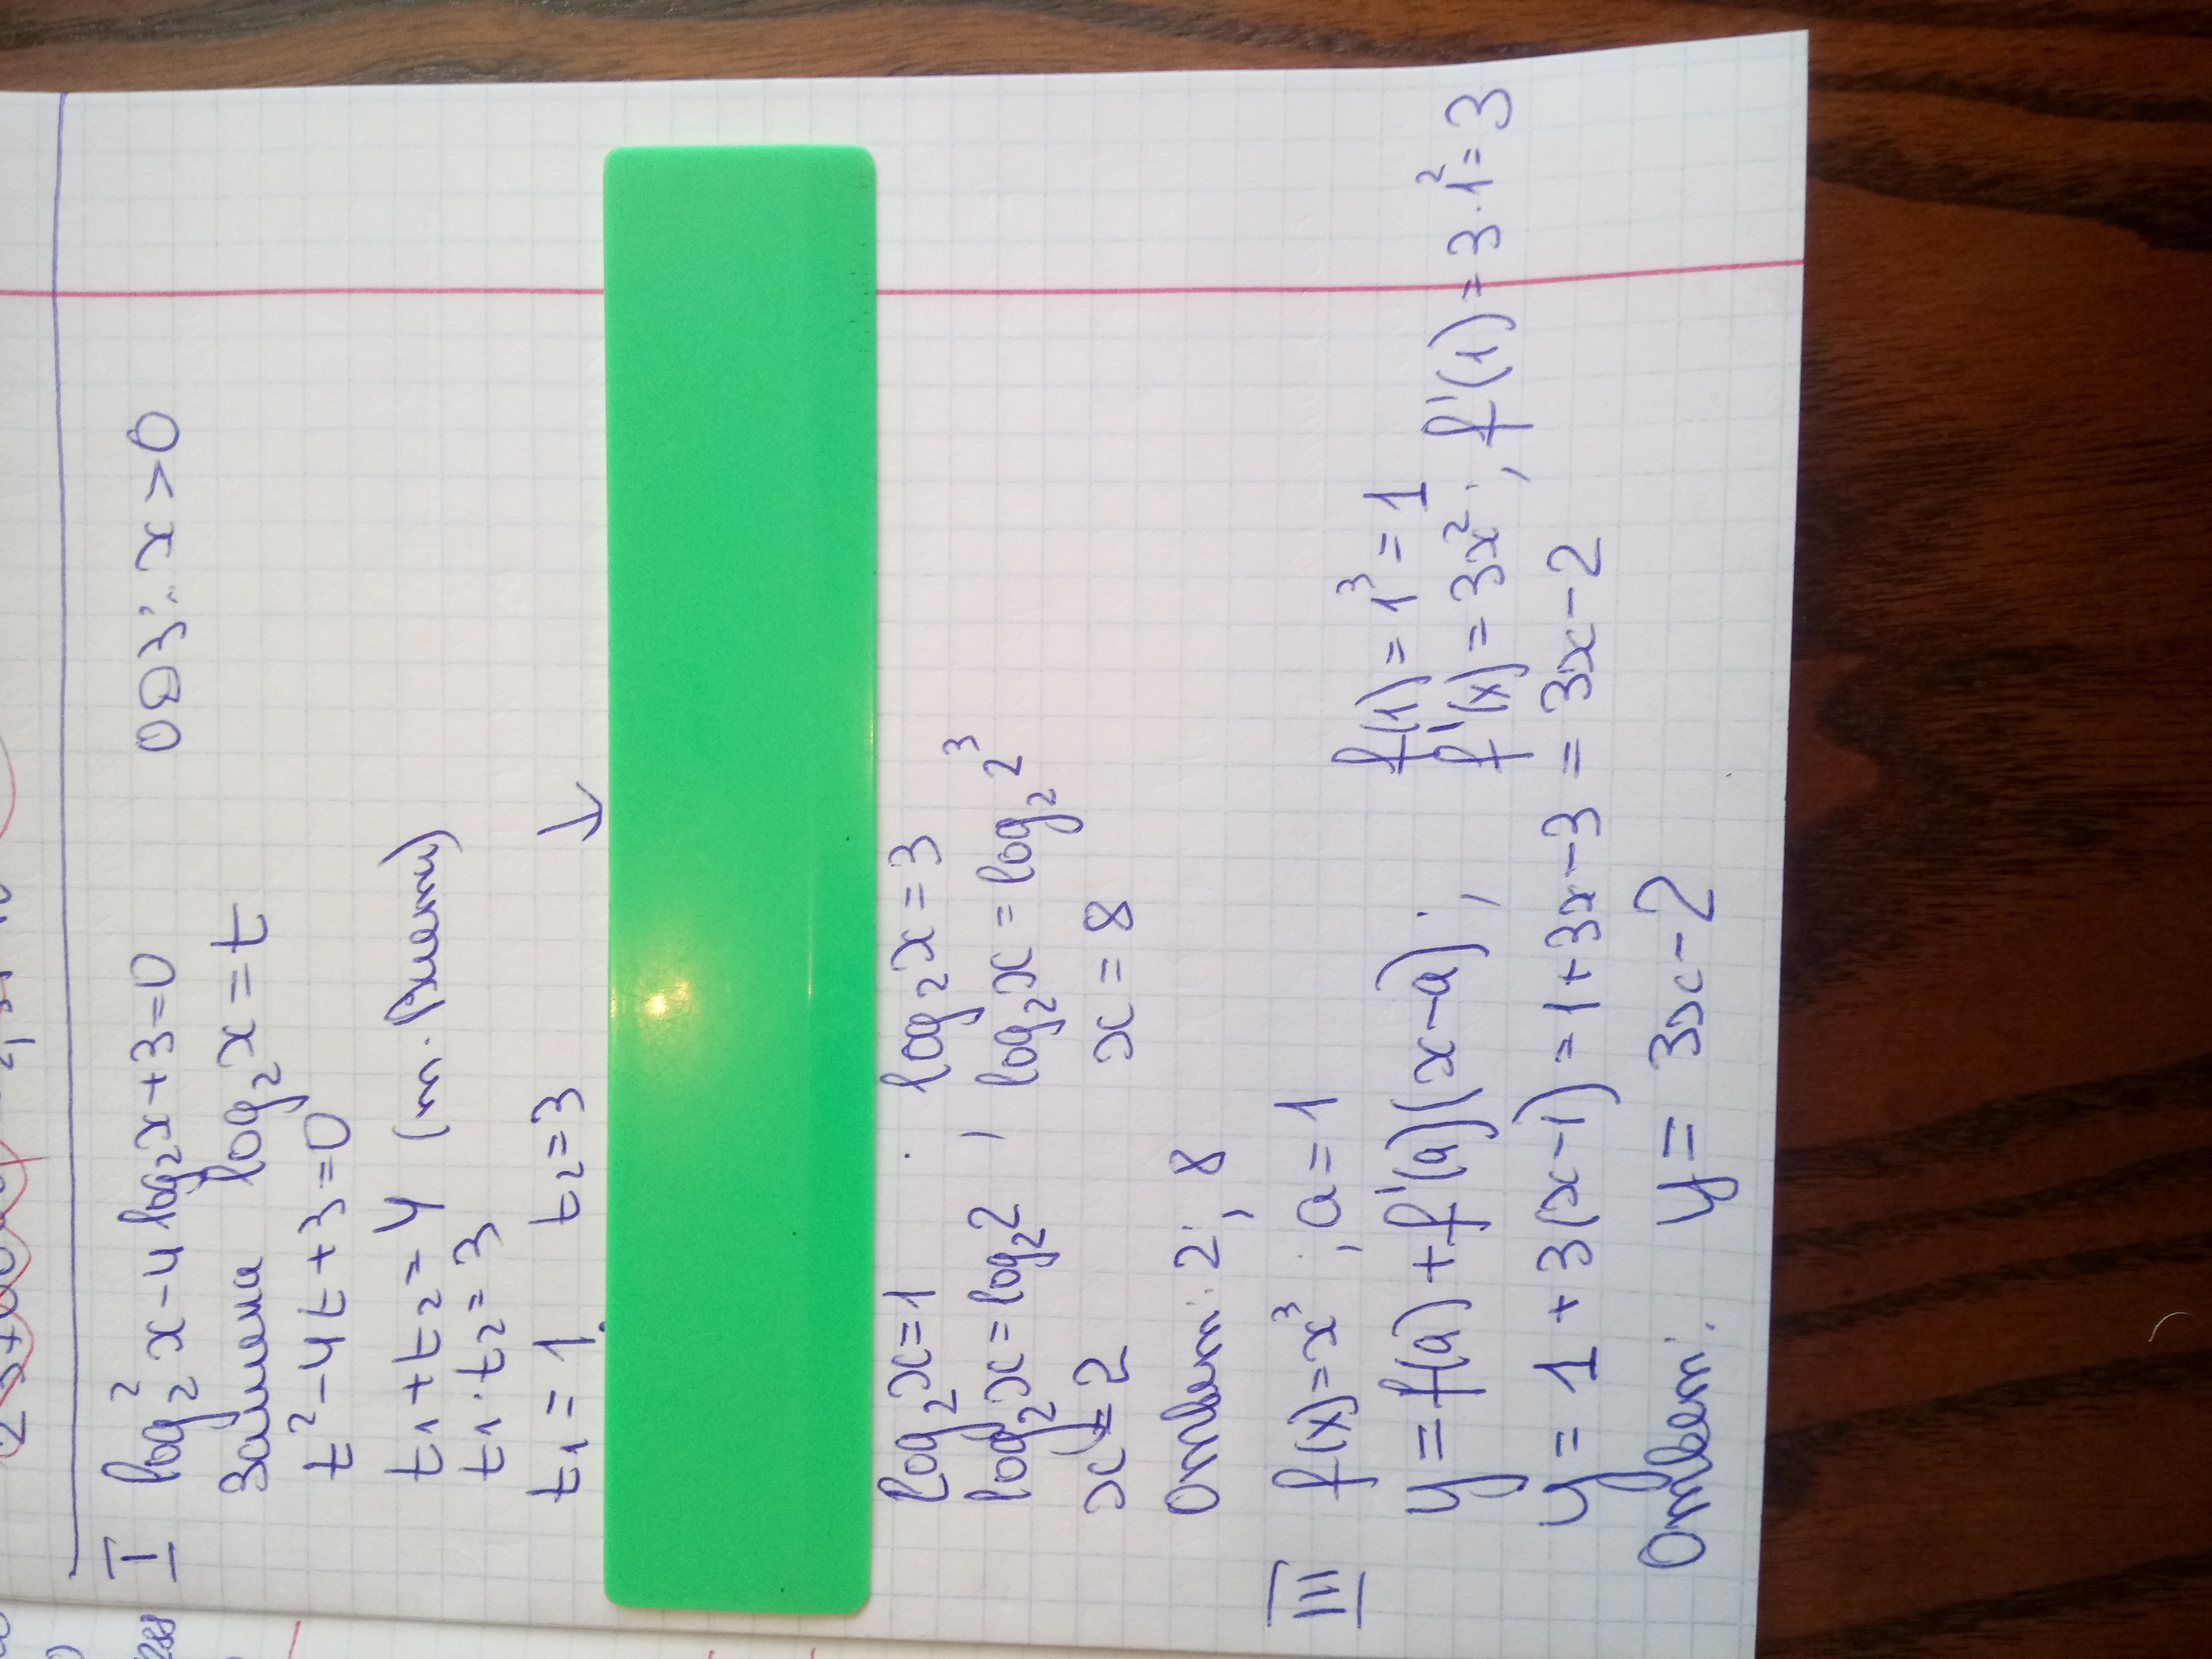 I log₂²x-4log₂x+3=0 ОДЗ: x>0
Замена log₂x=t
t²-4t+3=0
t₁+t₂=4 (т. Виета)
t₁·t₂=3
t₁=1 t₂=3
↓
log₂x=1 ; log₂x=3
log₂x=log₂2 log₂x=log₂2³
x=2 x=8
Ответ: 2; 8
III f(x)=x³ ; a=1
f(1)=1³=1
y=f(a)+f'(a)(x-a); f'(x)=3x²; f'(1)=3·1²=3
y=1+3(x-1)=1+3x-3=3x-2
Ответ: y=3x-2
288